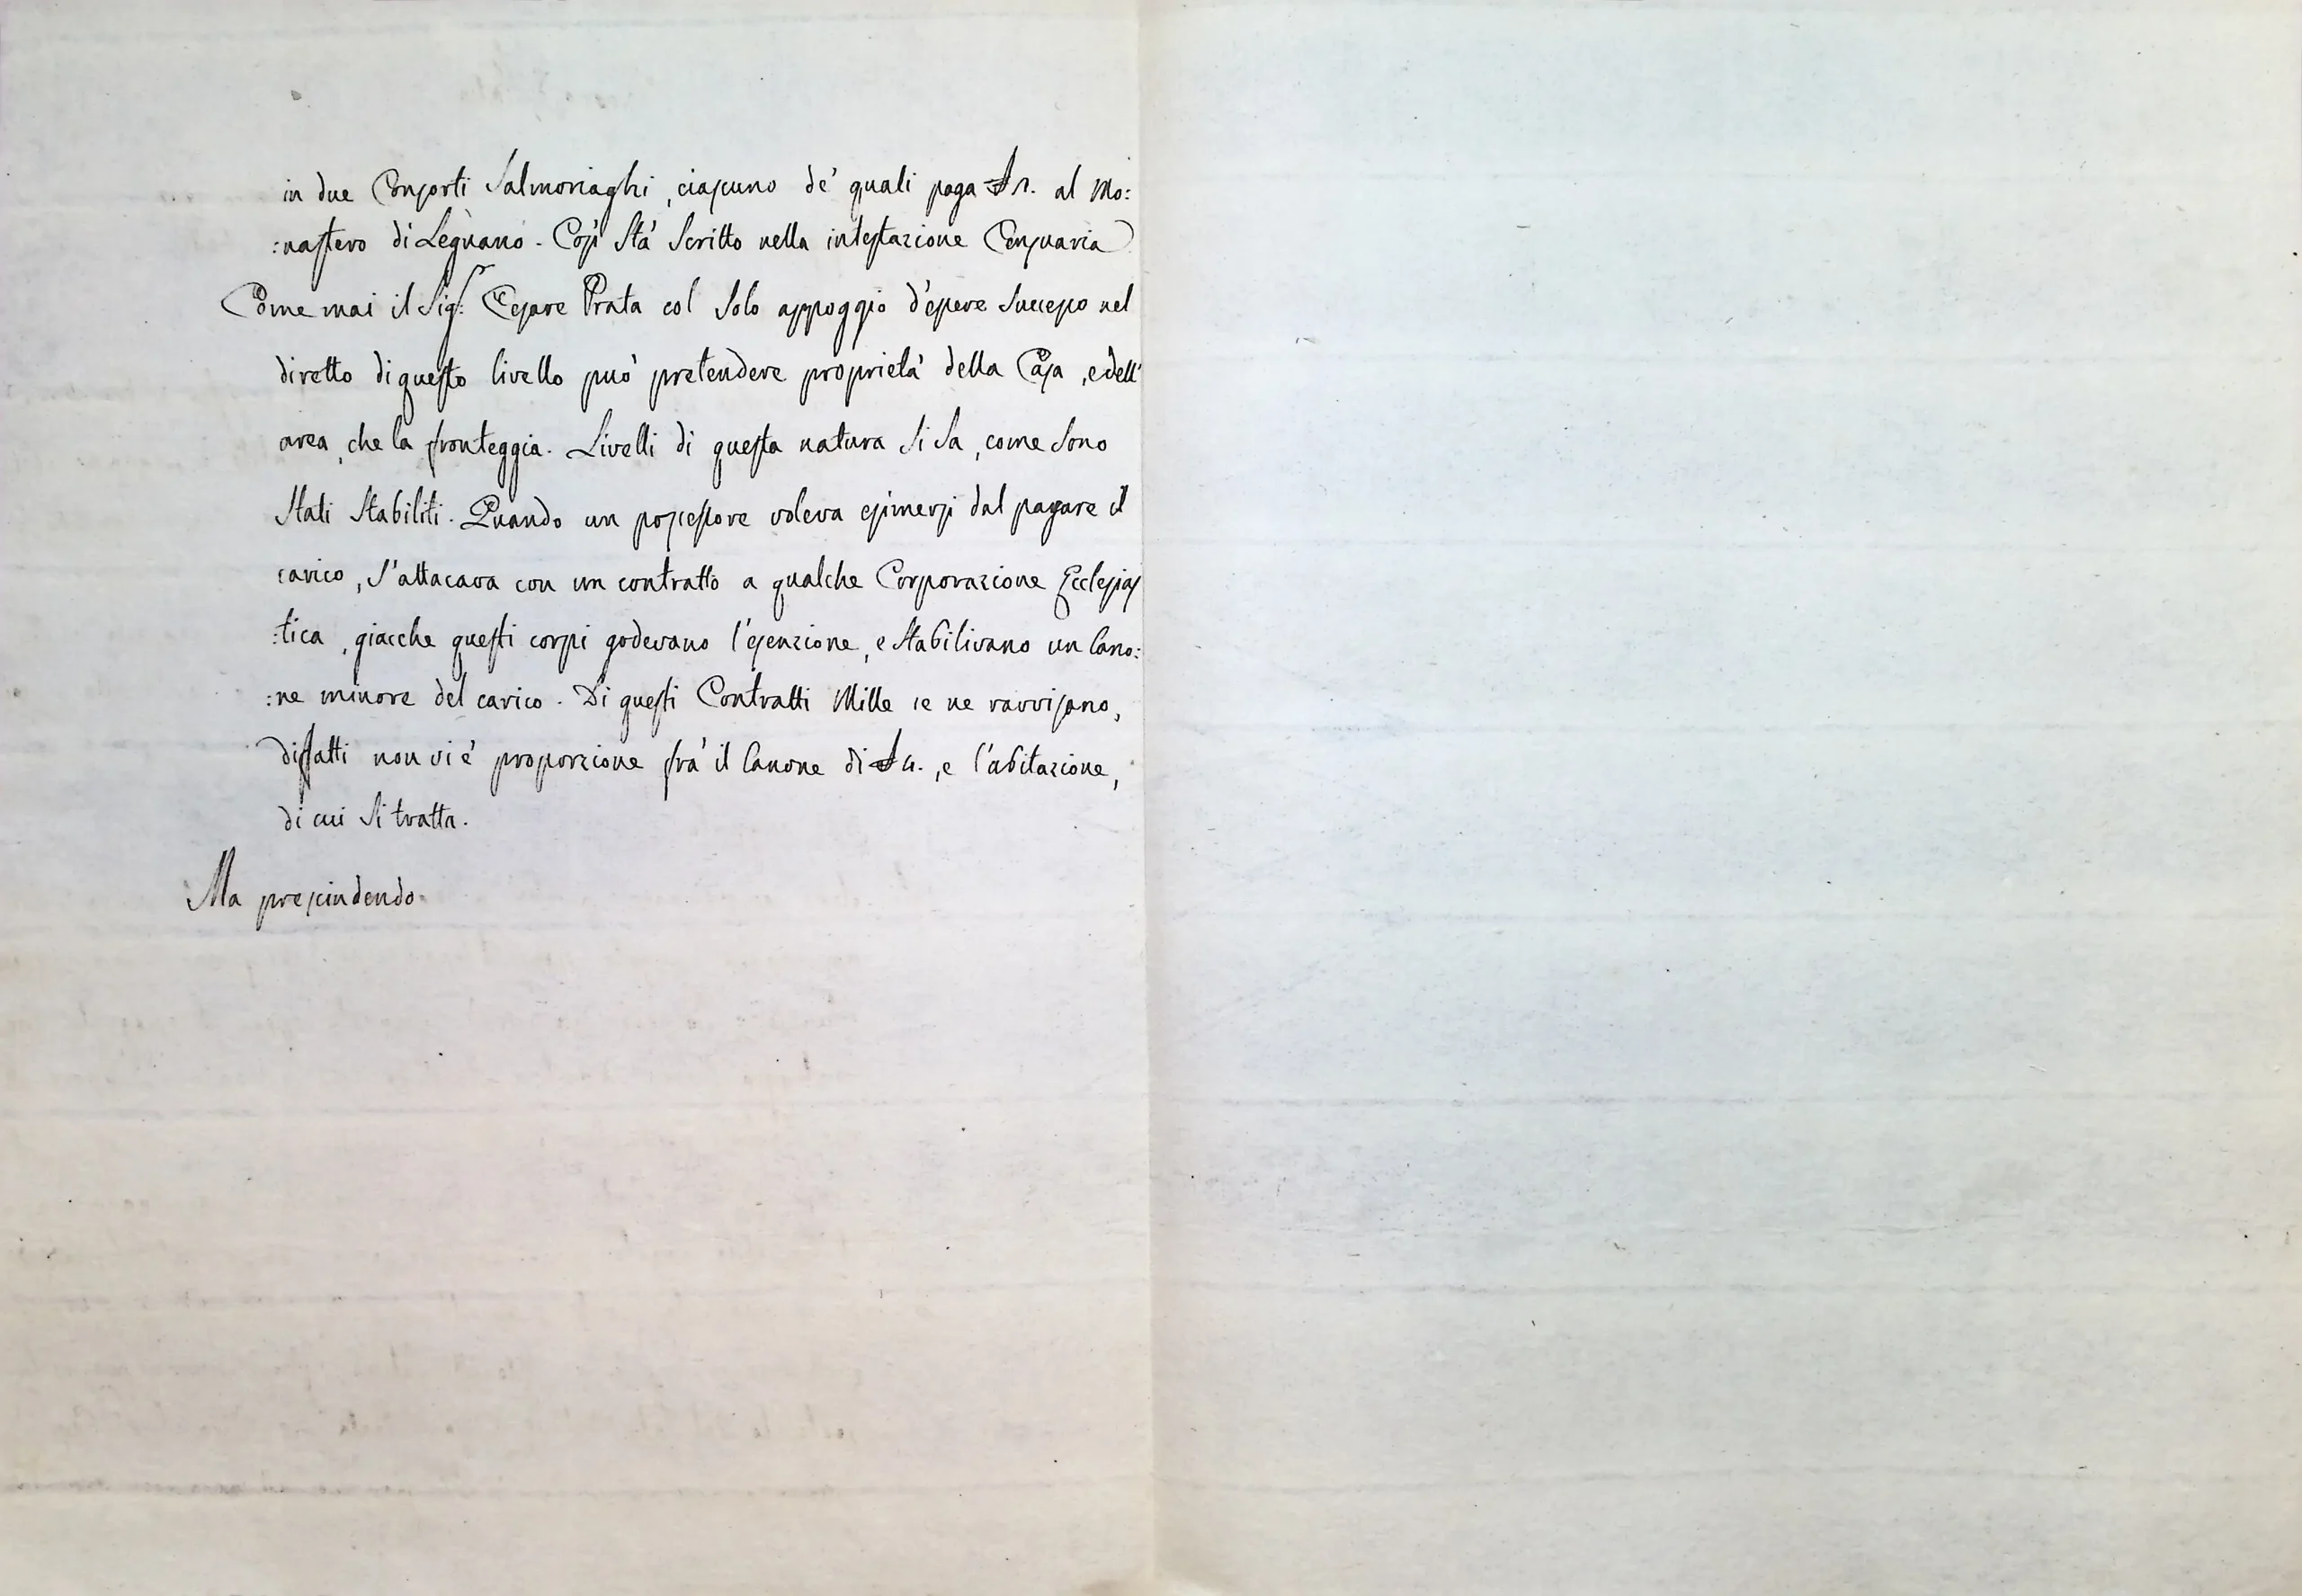 in due Consorti Salmoriaghi, ciascuno de' quali paga £ 2. al Mo:
:nastero di Legnano. Così Stà Scritto nella intestazione Censuaria
Come mai il Sigr: Cesare Prata col Solo appoggio d'essere Successo nel
diretto di questo livello può pretendere proprietà della Casa, e dell'
area, che la fronteggia. Livelli di questa natura Si Sa, come Sono
Stati Stabiliti. Quando un possessore voleva esimersi dal pagare il
carico, S'attacava con un contratto a qualche Corporazione Ecclesias
:tica, giacche questi corpi godevano l'esenzione, e Stabilivano un Cano:
:ne minore del carico. Di questi Contratti Mille se ne ravvisano,
diffatti non vi è proporzione frà il Canone di £ 4., e l'abitazione,
di cui Si tratta.
Ma prescindendo